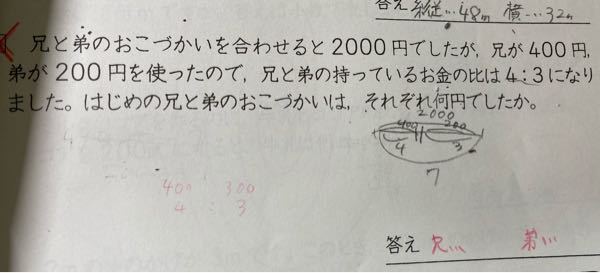 答え 縦…48m 横…32m
兄と弟のおこづかいを合わせると2000円でしたが,兄が400円,
弟が200円を使ったので,兄と弟の持っているお金の比は4:3になり
ました。はじめの兄と弟のおこづかいは,それぞれ何円でしたか。
2000
400 200
4 3
7
400 300
4 : 3
答え 兄… 弟…